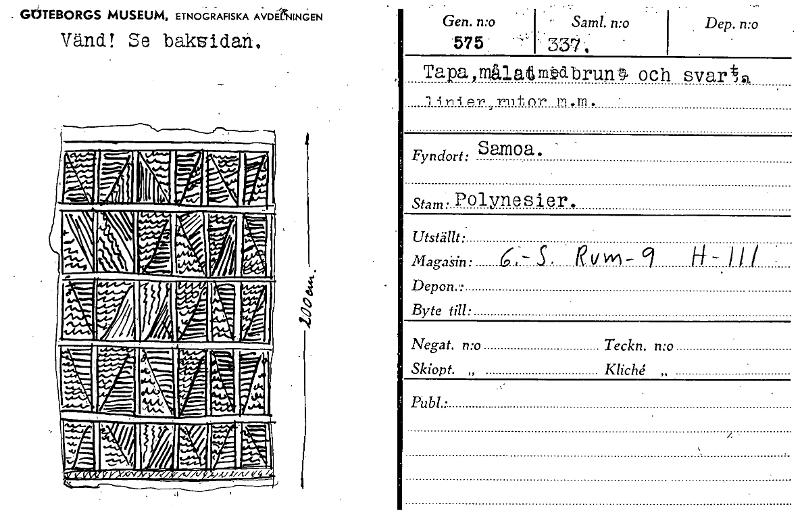 GÖTEBORGS MUSEUM, ETNOGRAFISKA AVDELNINGEN
Vänd! Se baksidan.
200 cm.
Gen. n:o Saml. n:o Dep. n:o
575 337.
Tapa, målad med bruna och svarta
linier, rutor m.m.
Fyndort: Samoa.
Stam: Polynesier.
Utställt:
Magasin: G.-S. Rum-9 H-III
Depon.:
Byte till:
Negat. n:o Teckn. n:o
Skiopt. „ Kliché „
Publ.: